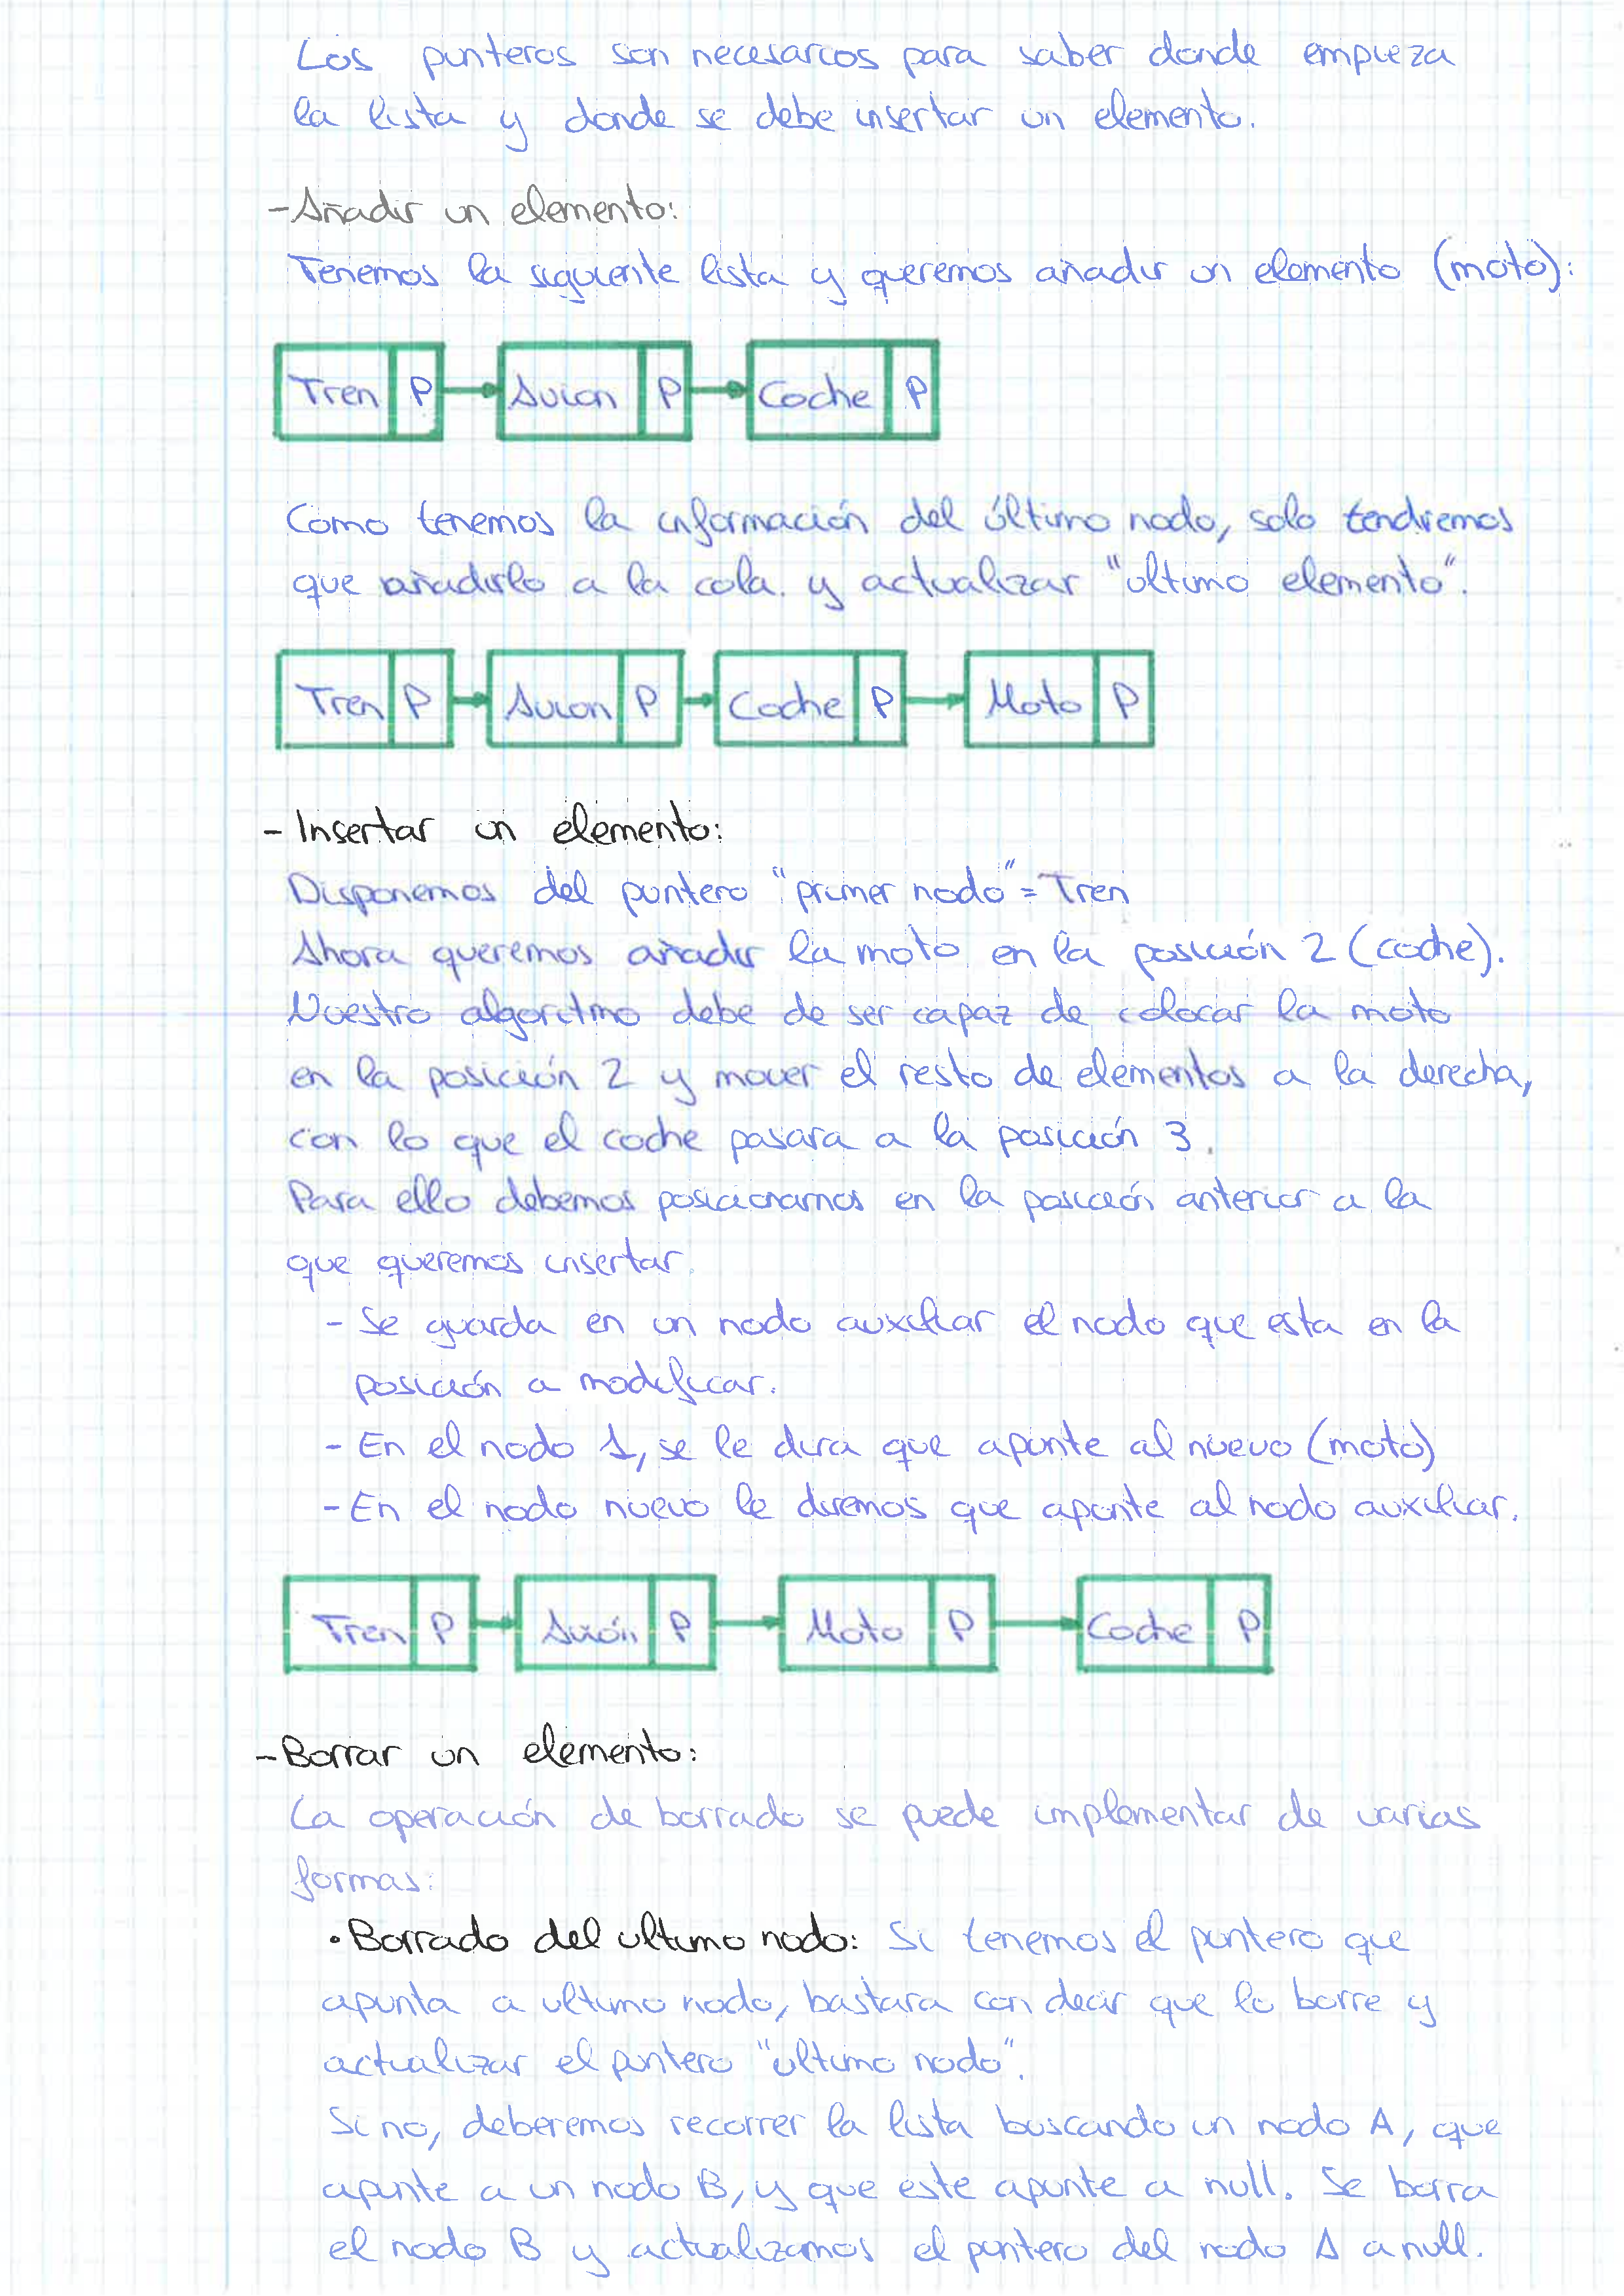 Los punteros son necesarios para saber donde empieza
la lista y donde se debe insertar un elemento.
- Añadir un elemento:
Tenemos la siguiente lista y queremos añadir un elemento (moto):
Tren P Avion P Coche P
Como tenemos la información del último nodo, solo tendremos
que añadirlo a la cola. y actualizar "ultimo elemento".
Tren P Avion P Coche P Moto P
- Insertar un elemento:
Disponemos del puntero "primer nodo" = Tren
Ahora queremos añadir la moto en la posición 2 (coche).
Nuestro algoritmo debe de ser capaz de colocar la moto
en la posición 2 y mover el resto de elementos a la derecha,
con lo que el coche pasara a la posición 3.
Para ello debemos posicionarnos en la posición anterior a la
que queremos insertar.
- Se guarda en un nodo auxiliar el nodo que esta en la
posición a modificar.
- En el nodo 1, se le dira que apunte al nuevo (moto)
- En el nodo nuevo le diremos que apunte al nodo auxiliar.
Tren P Avión P Moto P Coche P
- Borrar un elemento:
La operación de borrado se puede implementar de varias
formas:
• Borrado del ultimo nodo: Si tenemos el puntero que
apunta a ultimo nodo, bastara con decir que lo borre y
actualizar el puntero "ultimo nodo".
Si no, deberemos recorrer la lista buscando un nodo A, que
apunte a un nodo B, y que este apunte a null. Se borra
el nodo B y actualizamos el puntero del nodo A a null.